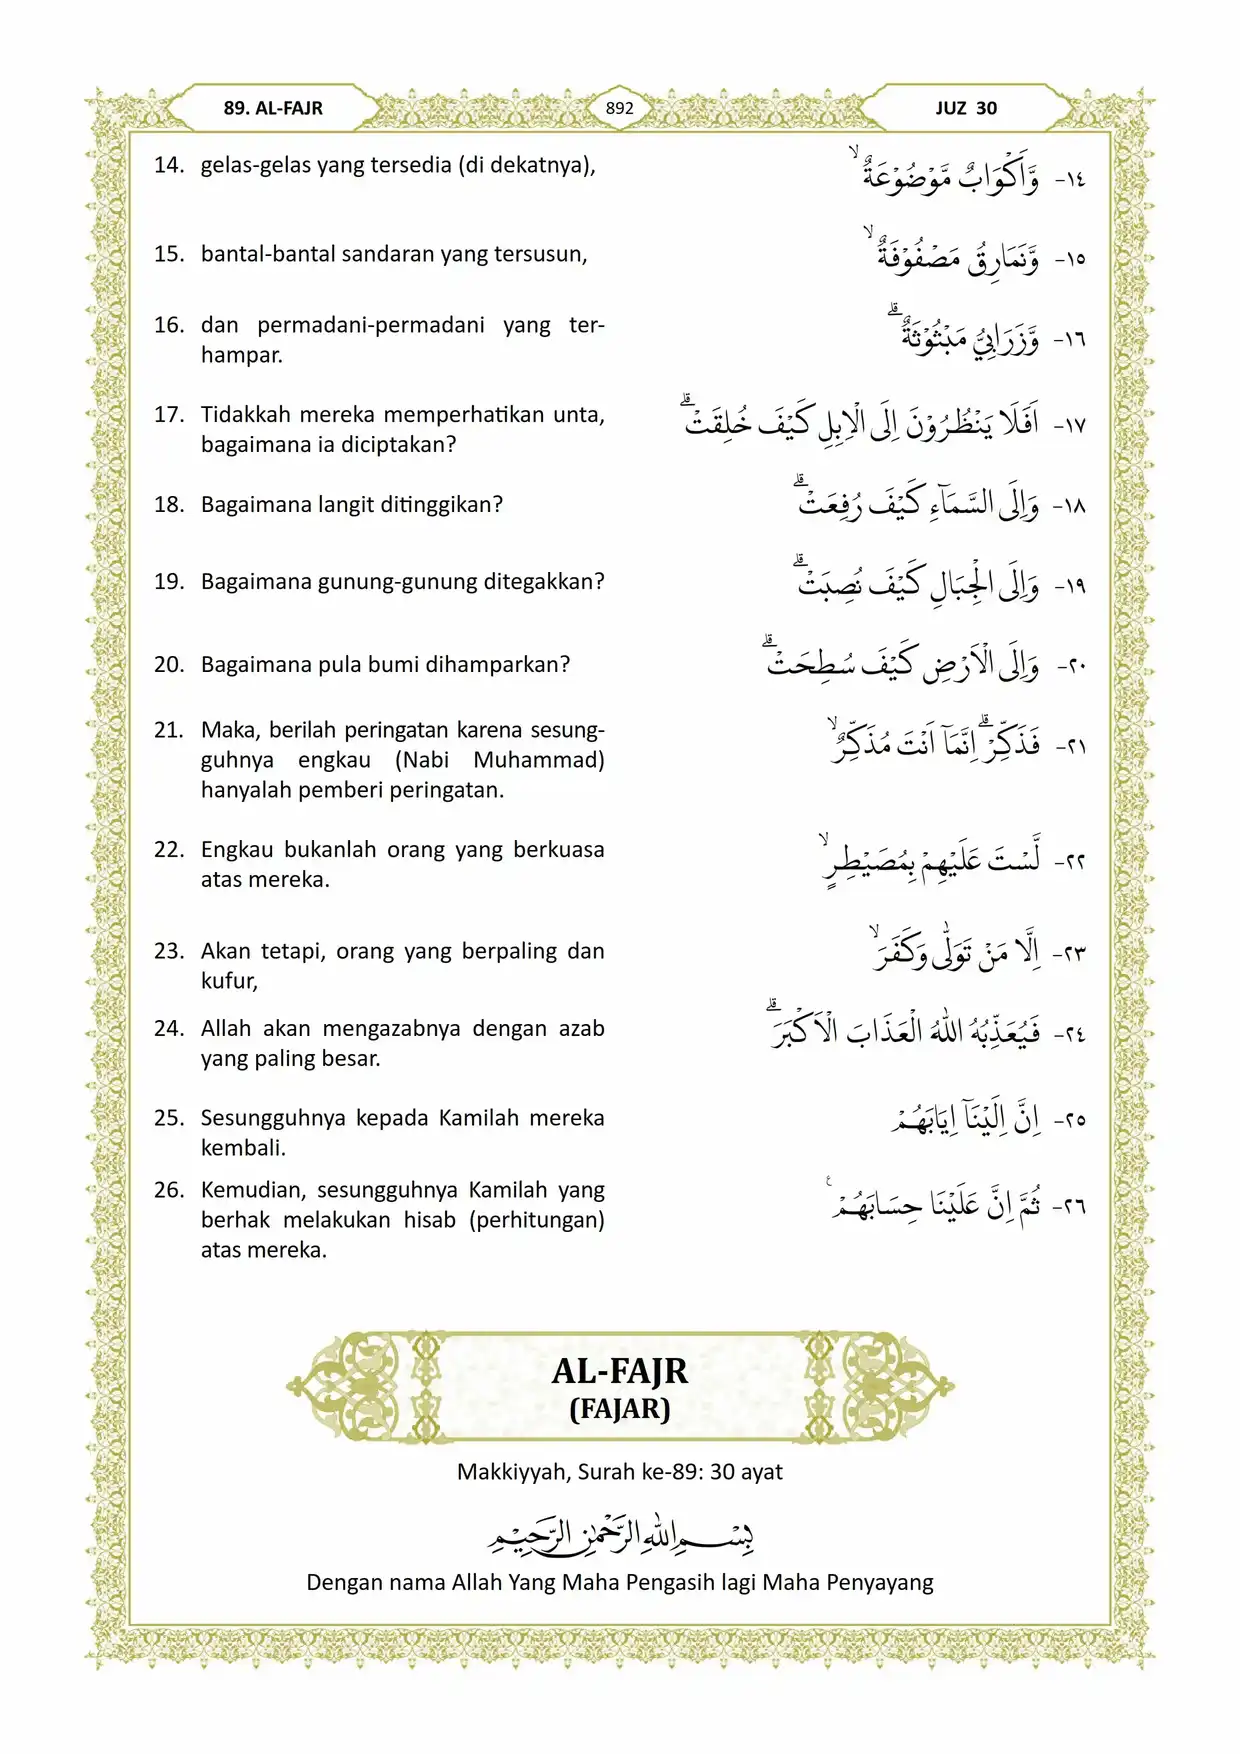 89. AL-FAJR
892
JUZ 30
14. gelas-gelas yang tersedia (di dekatnya),
١٤- وَّاَكْوَابٌ مَّوْضُوْعَةٌ ۙ
15. bantal-bantal sandaran yang tersusun,
١٥- وَّنَمَارِقُ مَصْفُوْفَةٌ ۙ
16. dan permadani-permadani yang ter-
hampar.
١٦- وَّزَرَابِيُّ مَبْثُوْثَةٌ ۗ
17. Tidakkah mereka memperhatikan unta,
bagaimana ia diciptakan?
١٧- اَفَلَا يَنْظُرُوْنَ اِلَى الْاِبِلِ كَيْفَ خُلِقَتْ ۗ
18. Bagaimana langit ditinggikan?
١٨- وَاِلَى السَّمَاۤءِ كَيْفَ رُفِعَتْ ۗ
19. Bagaimana gunung-gunung ditegakkan?
١٩- وَاِلَى الْجِبَالِ كَيْفَ نُصِبَتْ ۗ
20. Bagaimana pula bumi dihamparkan?
٢٠- وَاِلَى الْاَرْضِ كَيْفَ سُطِحَتْ ۗ
21. Maka, berilah peringatan karena sesung-
guhnya engkau (Nabi Muhammad)
hanyalah pemberi peringatan.
٢١- فَذَكِّرْ ۗ اِنَّمَآ اَنْتَ مُذَكِّرٌ ۙ
22. Engkau bukanlah orang yang berkuasa
atas mereka.
٢٢- لَّسْتَ عَلَيْهِمْ بِمُصَيْطِرٍ ۙ
23. Akan tetapi, orang yang berpaling dan
kufur,
٢٣- اِلَّا مَنْ تَوَلّٰى وَكَفَرَ ۙ
24. Allah akan mengazabnya dengan azab
yang paling besar.
٢٤- فَيُعَذِّبُهُ اللّٰهُ الْعَذَابَ الْاَكْبَرَ ۗ
25. Sesungguhnya kepada Kamilah mereka
kembali.
٢٥- اِنَّ اِلَيْنَآ اِيَابَهُمْ
26. Kemudian, sesungguhnya Kamilah yang
berhak melakukan hisab (perhitungan)
atas mereka.
٢٦- ثُمَّ اِنَّ عَلَيْنَا حِسَابَهُمْ ࣖ
AL-FAJR
(FAJAR)
Makkiyyah, Surah ke-89: 30 ayat
بِسْمِ اللّٰهِ الرَّحْمٰنِ الرَّحِيْمِ
Dengan nama Allah Yang Maha Pengasih lagi Maha Penyayang